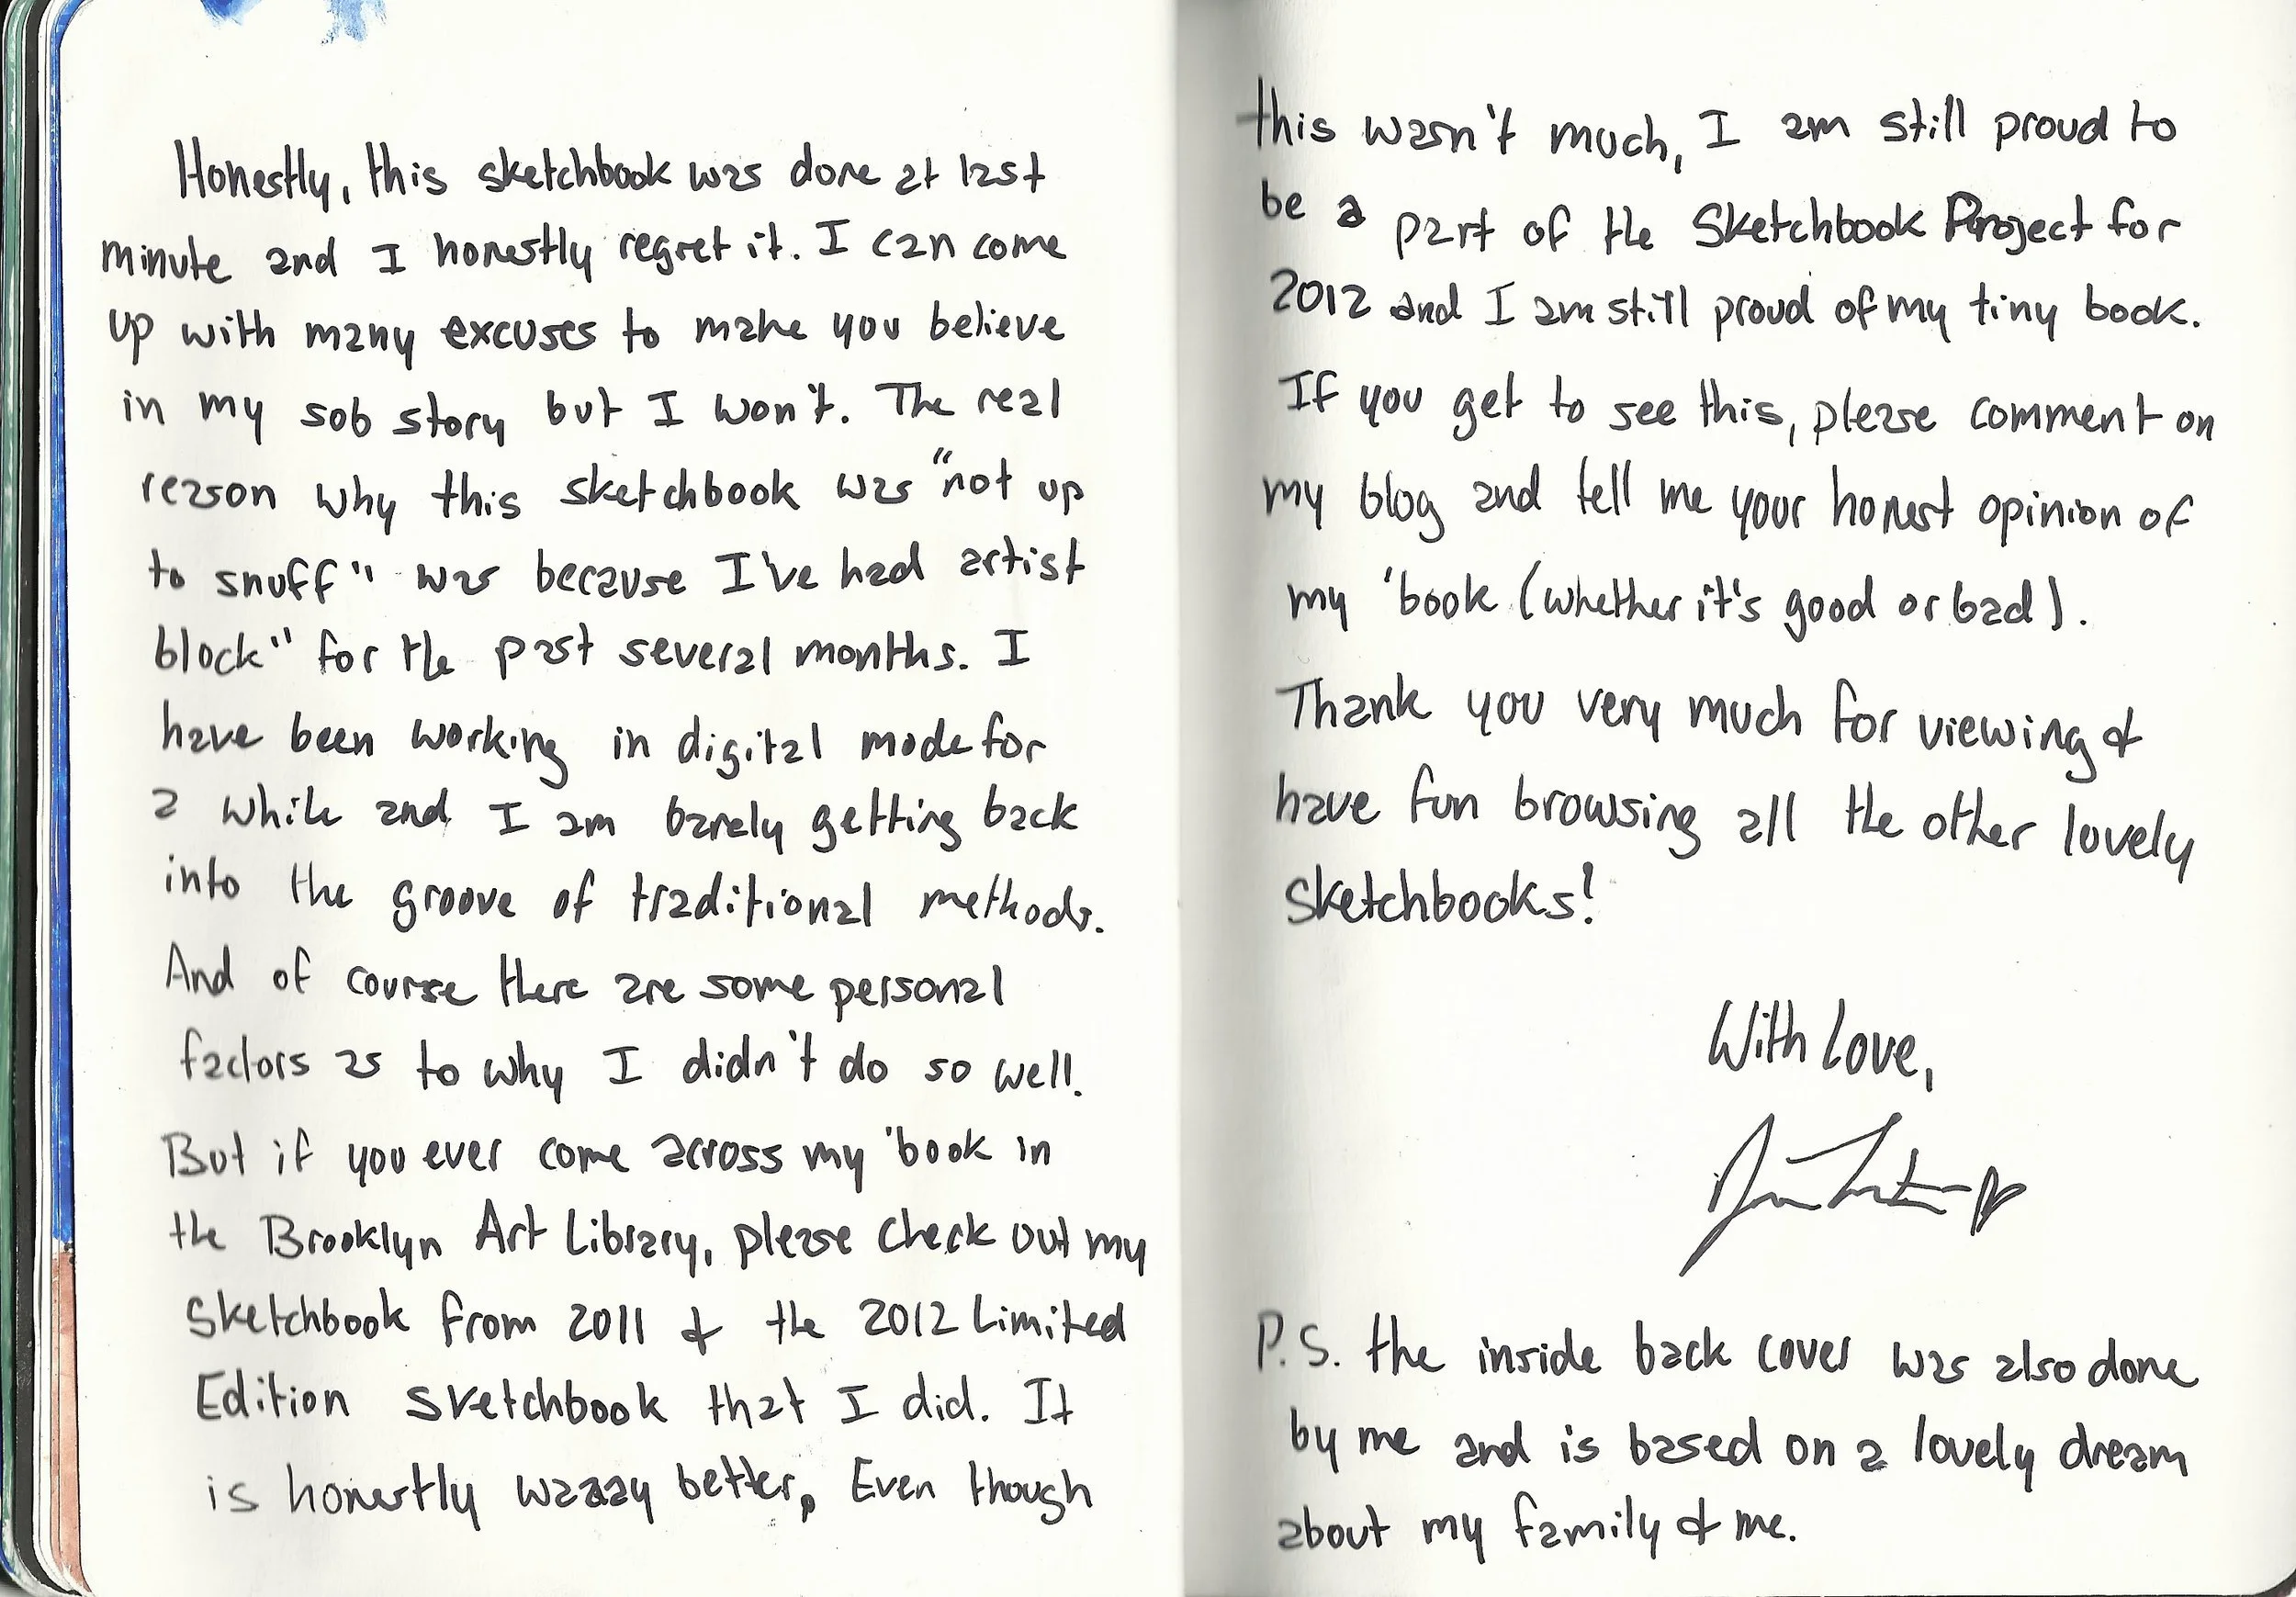 Honestly, this sketchbook was done at last
minute and I honestly regret it. I can come
up with many excuses to make you believe
in my sob story but I won't. The real
reason why this sketchbook was "not up
to snuff" was because I've had artist
block" for the past several months. I
have been working in digital mode for
a while and I am barely getting back
into the groove of traditional methods.
And of course there are some personal
factors as to why I didn't do so well.
But if you ever come across my 'book in
the Brooklyn Art Library, please check out my
Sketchbook from 2011 & the 2012 Limited
Edition sketchbook that I did. It
is honestly waaay better, Even though
this wasn't much, I am still proud to
be a part of the Sketchbook Project for
2012 and I am still proud of my tiny book.
If you get to see this, please comment on
my blog and tell me your honest opinion of
my 'book (whether it's good or bad).
Thank you very much for viewing &
have fun browsing all the other lovely
sketchbooks!
With Love,
P.S. the inside back cover was also done
by me and is based on a lovely dream
about my family & me.